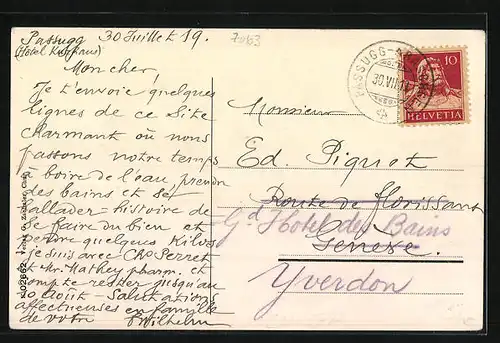 Passugg 30 Juillet 19.
(Hôtel Kurhaus)
Mon cher!
Je t'envoie quelques
lignes de ce site
charmant où nous
passons notre temps
à boire de l'eau, prendre
des bains et se
ballader - histoire de
se faire du bien et
perdre quelques kilos
je suis avec Chs Perret
et Mr. Mathey pharm. et
compte rester jusqu'au
10 Août - Salutations
affectueuses en famille
de votre Wilhelm
7063
PASSUGG
30.VII.
10
HELVETIA
Monsieur
Ed. Piguet
Route de Florissant
Gd Hotel des Bains
Genève
Yverdon